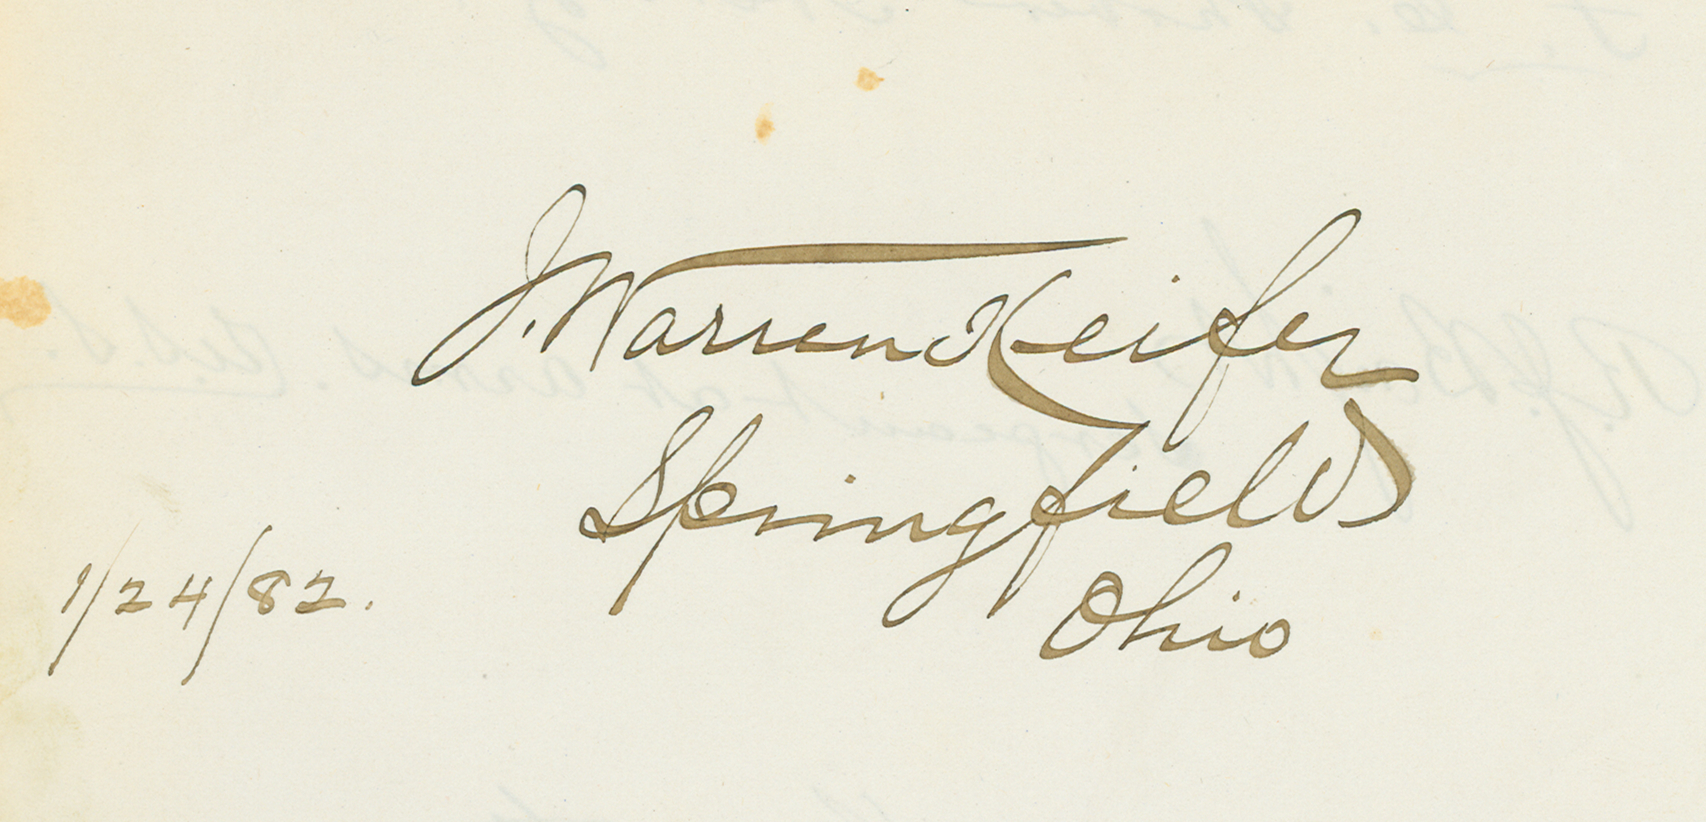 J. Warren Keifer
Springfield
Ohio
1/24/82.